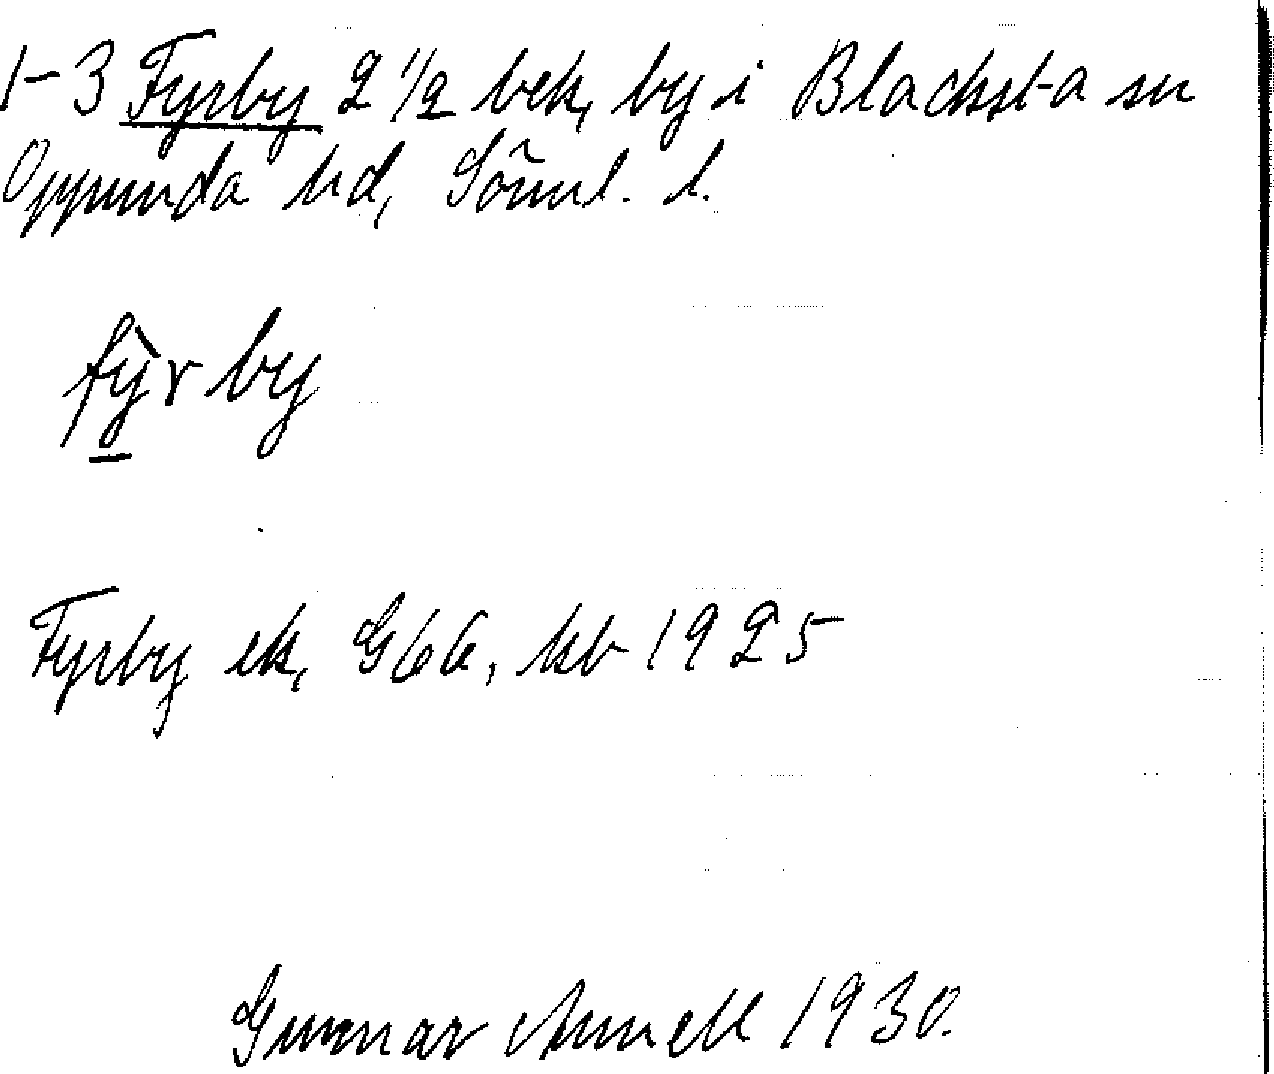 1-3 Fyrby 2 1/2 bek, by i Blacksta sn
Oppunda hd, Söml. l.
fỳ̱r by
Fyrby ek, G66, kb 1925
Gunnar Annell 1930.